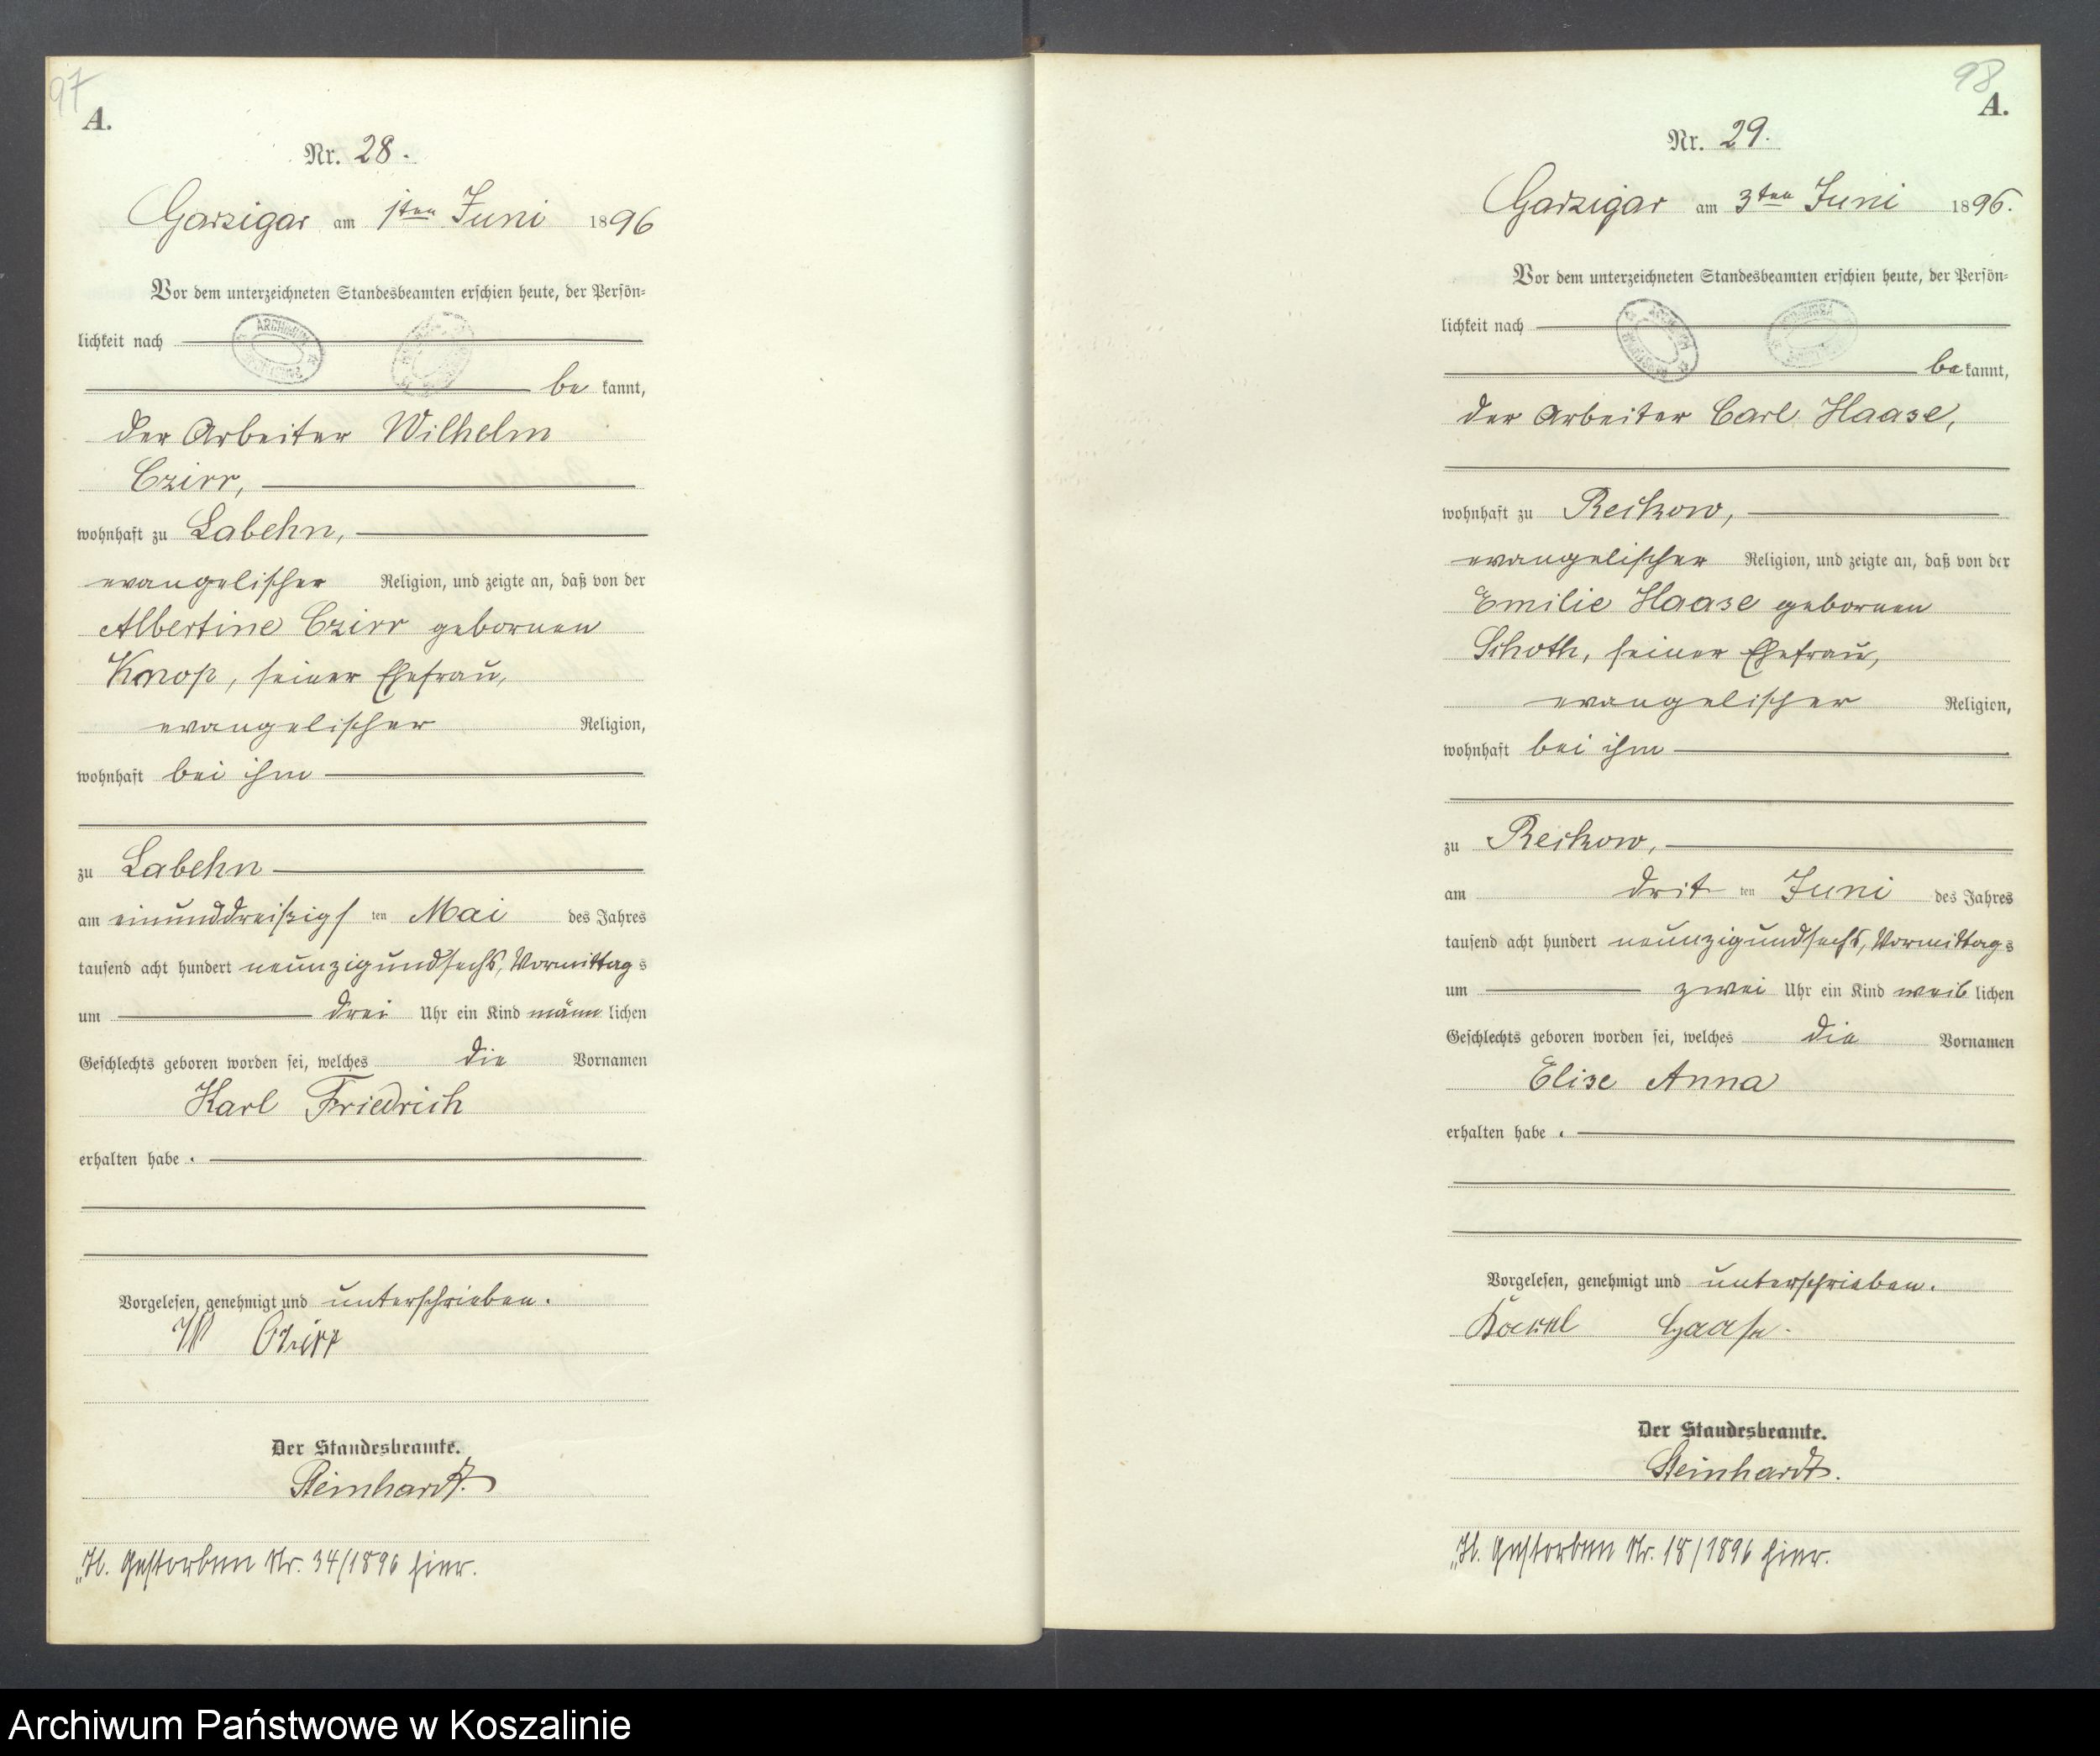 97
A.
Nr. 28.
Garzigar am 1ten Juni 1896
Vor dem unterzeichneten Standesbeamten erschien heute, der Persön-
lichkeit nach
be kannt,
der Arbeiter Wilhelm
Czirr,
wohnhaft zu Labehn,
evangelischer Religion, und zeigte an, daß von der
Albertine Czirr geborenen
Knop, seiner Ehefrau,
evangelischer Religion,
wohnhaft bei ihm
zu Labehn
am einunddreißigs ten Mai des Jahres
tausend acht hundert neunzigundsechs, Vormittag s
um drei Uhr ein Kind männ lichen
Geschlechts geboren worden sei, welches die Vornamen
Karl Friedrich
erhalten habe.
Vorgelesen, genehmigt und unterschrieben.
W Czirr
Der Standesbeamte.
Steinhardt.
H. Gestorben Nr. 34/1896 hier.
98
A.
Nr. 29.
Garzigar am 3ten Juni 1896.
Vor dem unterzeichneten Standesbeamten erschien heute, der Persön-
lichkeit nach
be kannt,
der Arbeiter Carl Haase,
wohnhaft zu Reckow,
evangelischer Religion, und zeigte an, daß von der
Emilie Haase geborenen
Schoth, seiner Ehefrau,
evangelischer Religion,
wohnhaft bei ihm
zu Reckow,
am drit ten Juni des Jahres
tausend acht hundert neunzigundsechs, Vormittag s
um zwei Uhr ein Kind weib lichen
Geschlechts geboren worden sei, welches die Vornamen
Elise Anna
erhalten habe.
Vorgelesen, genehmigt und unterschrieben.
Haase.
Der Standesbeamte.
Steinhardt.
H. Gestorben Nr. 18/1896 hier.
Archiwum Państwowe w Koszalinie